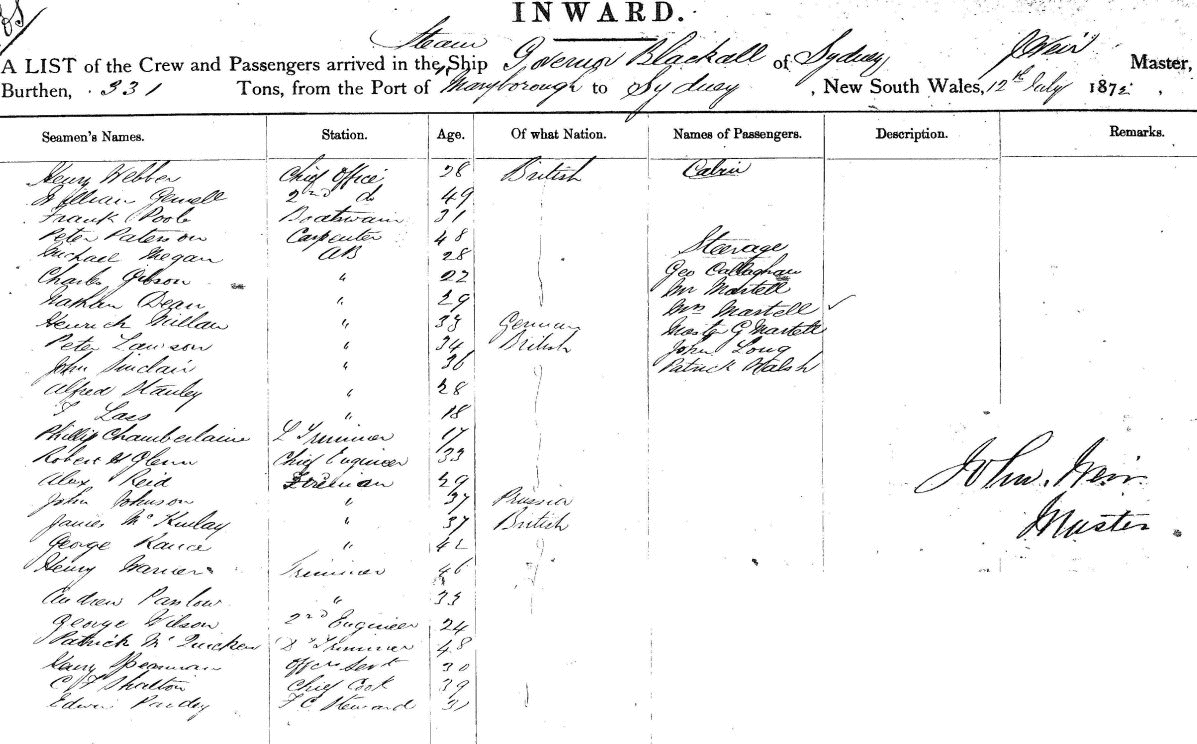 INWARD.
A LIST of the Crew and Passengers arrived in the Steam Ship Governor Blackall of Sydney J Weir Master,
Burthen, 331 Tons, from the Port of Maryborough to Sydney, New South Wales, 12th July 1872.
Seamen's Names. Station. Age. Of what Nation. Names of Passengers. Description. Remarks.
Henry Webber Chief Office 28 British Cabin
William Gewell 2nd do 49
Frank Poole Boatswain 31
Peter Paterson Carpenter 48 Steerage
Michael Megan AB 28 Geo Callaghan
Charles Gibson " 22 Mr Martell
Nathan Dean " 29 Mrs Martell ✓
Henrich Millan " 33 German Mastr G Martell
Peter Lawson " 34 British John Long
John Sinclair " 36 Patrick Walsh
Alfred Stanley " 28
T Lass " 18
Phillip Chamberlaine L Trimmer 17
Robert Glenn Chief Engineer 33
Alex Reid Fireman 29
John Johnson " 37 Prussia
James McKinlay " 37 British
George Rance " 42
Henry Warner Trimmer 46
Andrew Parlow " 33
George Wilson 2nd Engineer 24
Patrick McQuicken Trimmer 48
Spearman Offrs Servt 30
C F Shelton Chief Cook 39
Edwin Pardey F.C. Steward 31
John Weir
Master